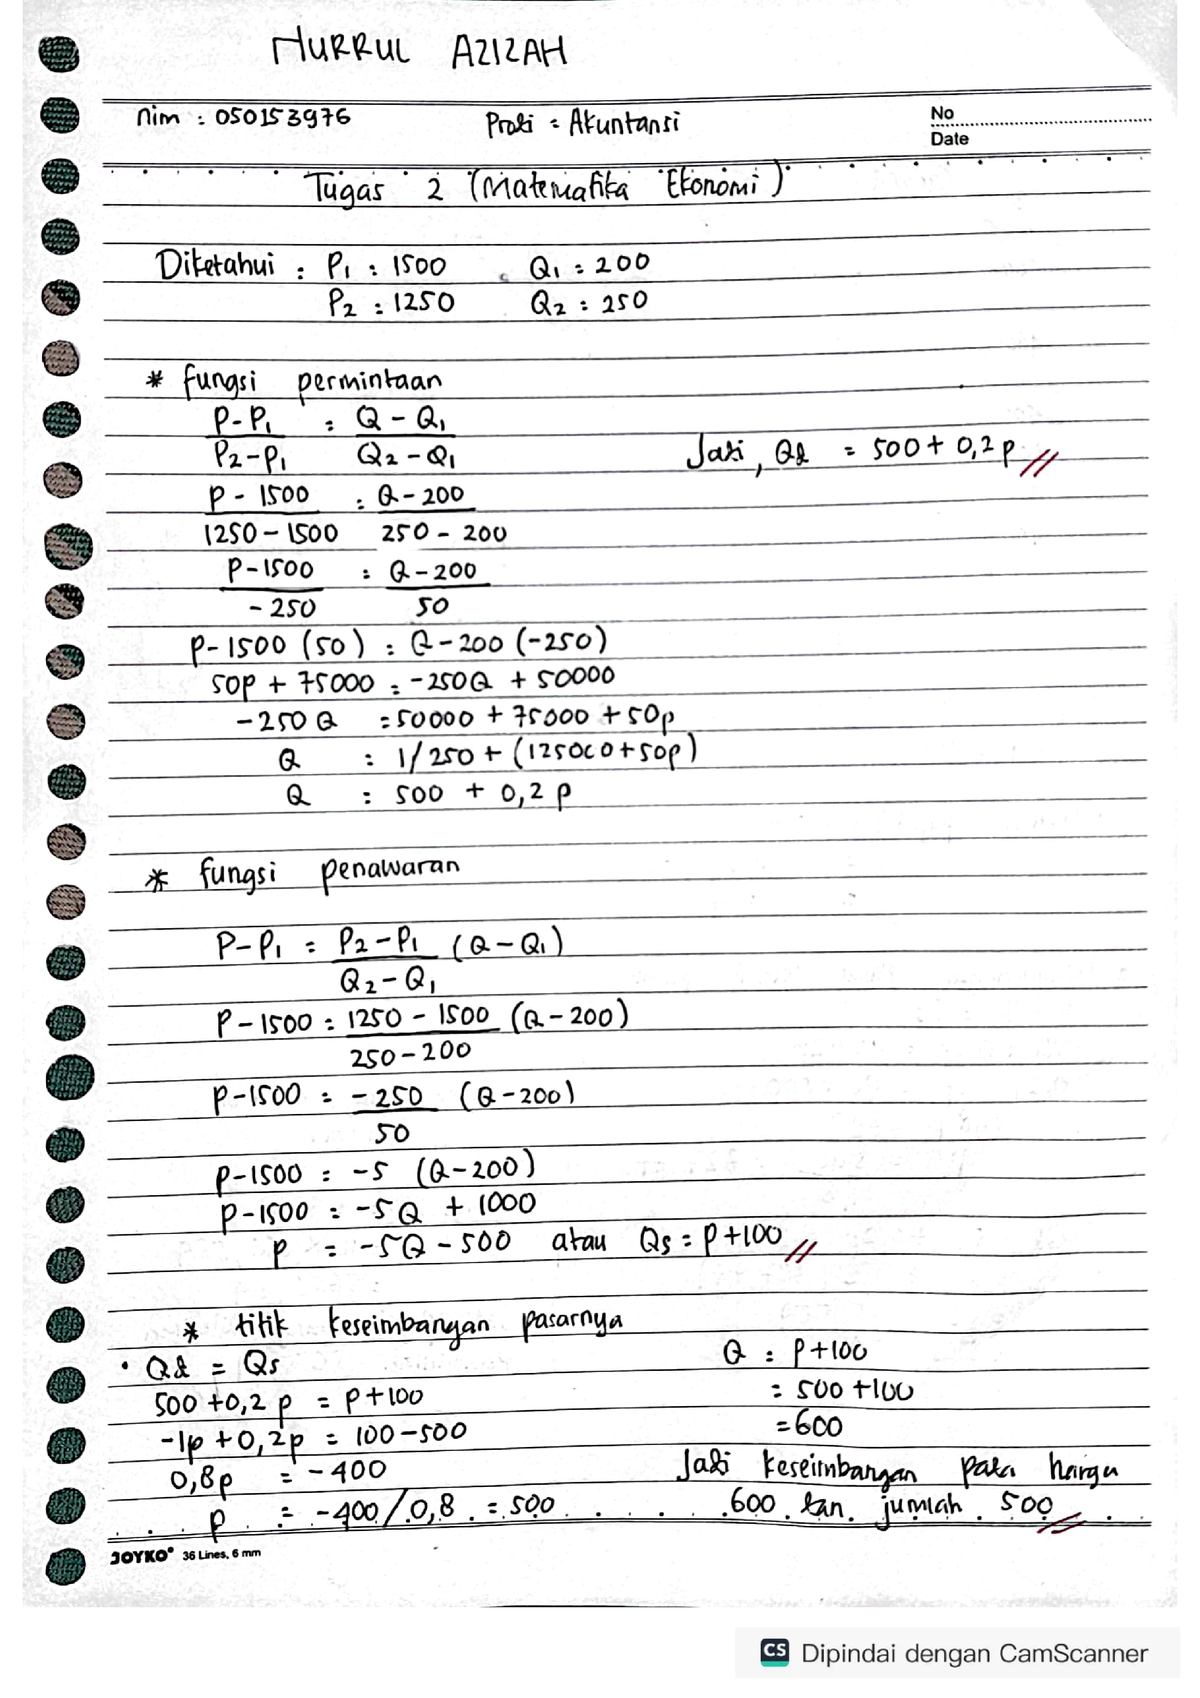 NURRUL AZIZAH
nim : 050153976 Prodi = Akuntansi No
Date
Tugas 2 (Matematika Ekonomi)
Diketahui : P1 : 1500 Q1 : 200
P2 : 1250 Q2 : 250
* fungsi permintaan
P-P1 : Q - Q1
P2-P1 Q2 - Q1
Jadi, Qd = 500 + 0,2 p //
P - 1500 : Q - 200
1250 - 1500 250 - 200
P-1500 : Q-200
-250 50
P-1500 (50) : Q-200 (-250)
50p + 75000 = -250Q + 50000
-250 Q = 50000 + 75000 + 50p
Q : 1/250 + (125000+50p)
Q : 500 + 0,2 p
* fungsi penawaran
P-P1 = P2-P1 (Q-Q1)
Q2-Q1
P-1500 = 1250 - 1500 (Q-200)
250-200
P-1500 = -250 (Q-200)
50
P-1500 = -5 (Q-200)
P-1500 = -5Q + 1000
P = -5Q - 500 atau Qs = P+100 //
* titik keseimbangan pasarnya
• Qd = Qs
500 +0,2 p = P+100
-1p +0,2p = 100-500
0,8p = -400
p = -400/0,8 = 500
Q : P+100
= 500 +100
=600
Jadi keseimbangan pada harga
600 dan jumlah 500 //
JOYKO® 36 Lines, 6 mm
CS Dipindai dengan CamScanner